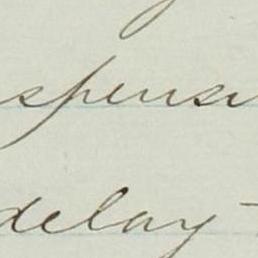 spensi
delay -